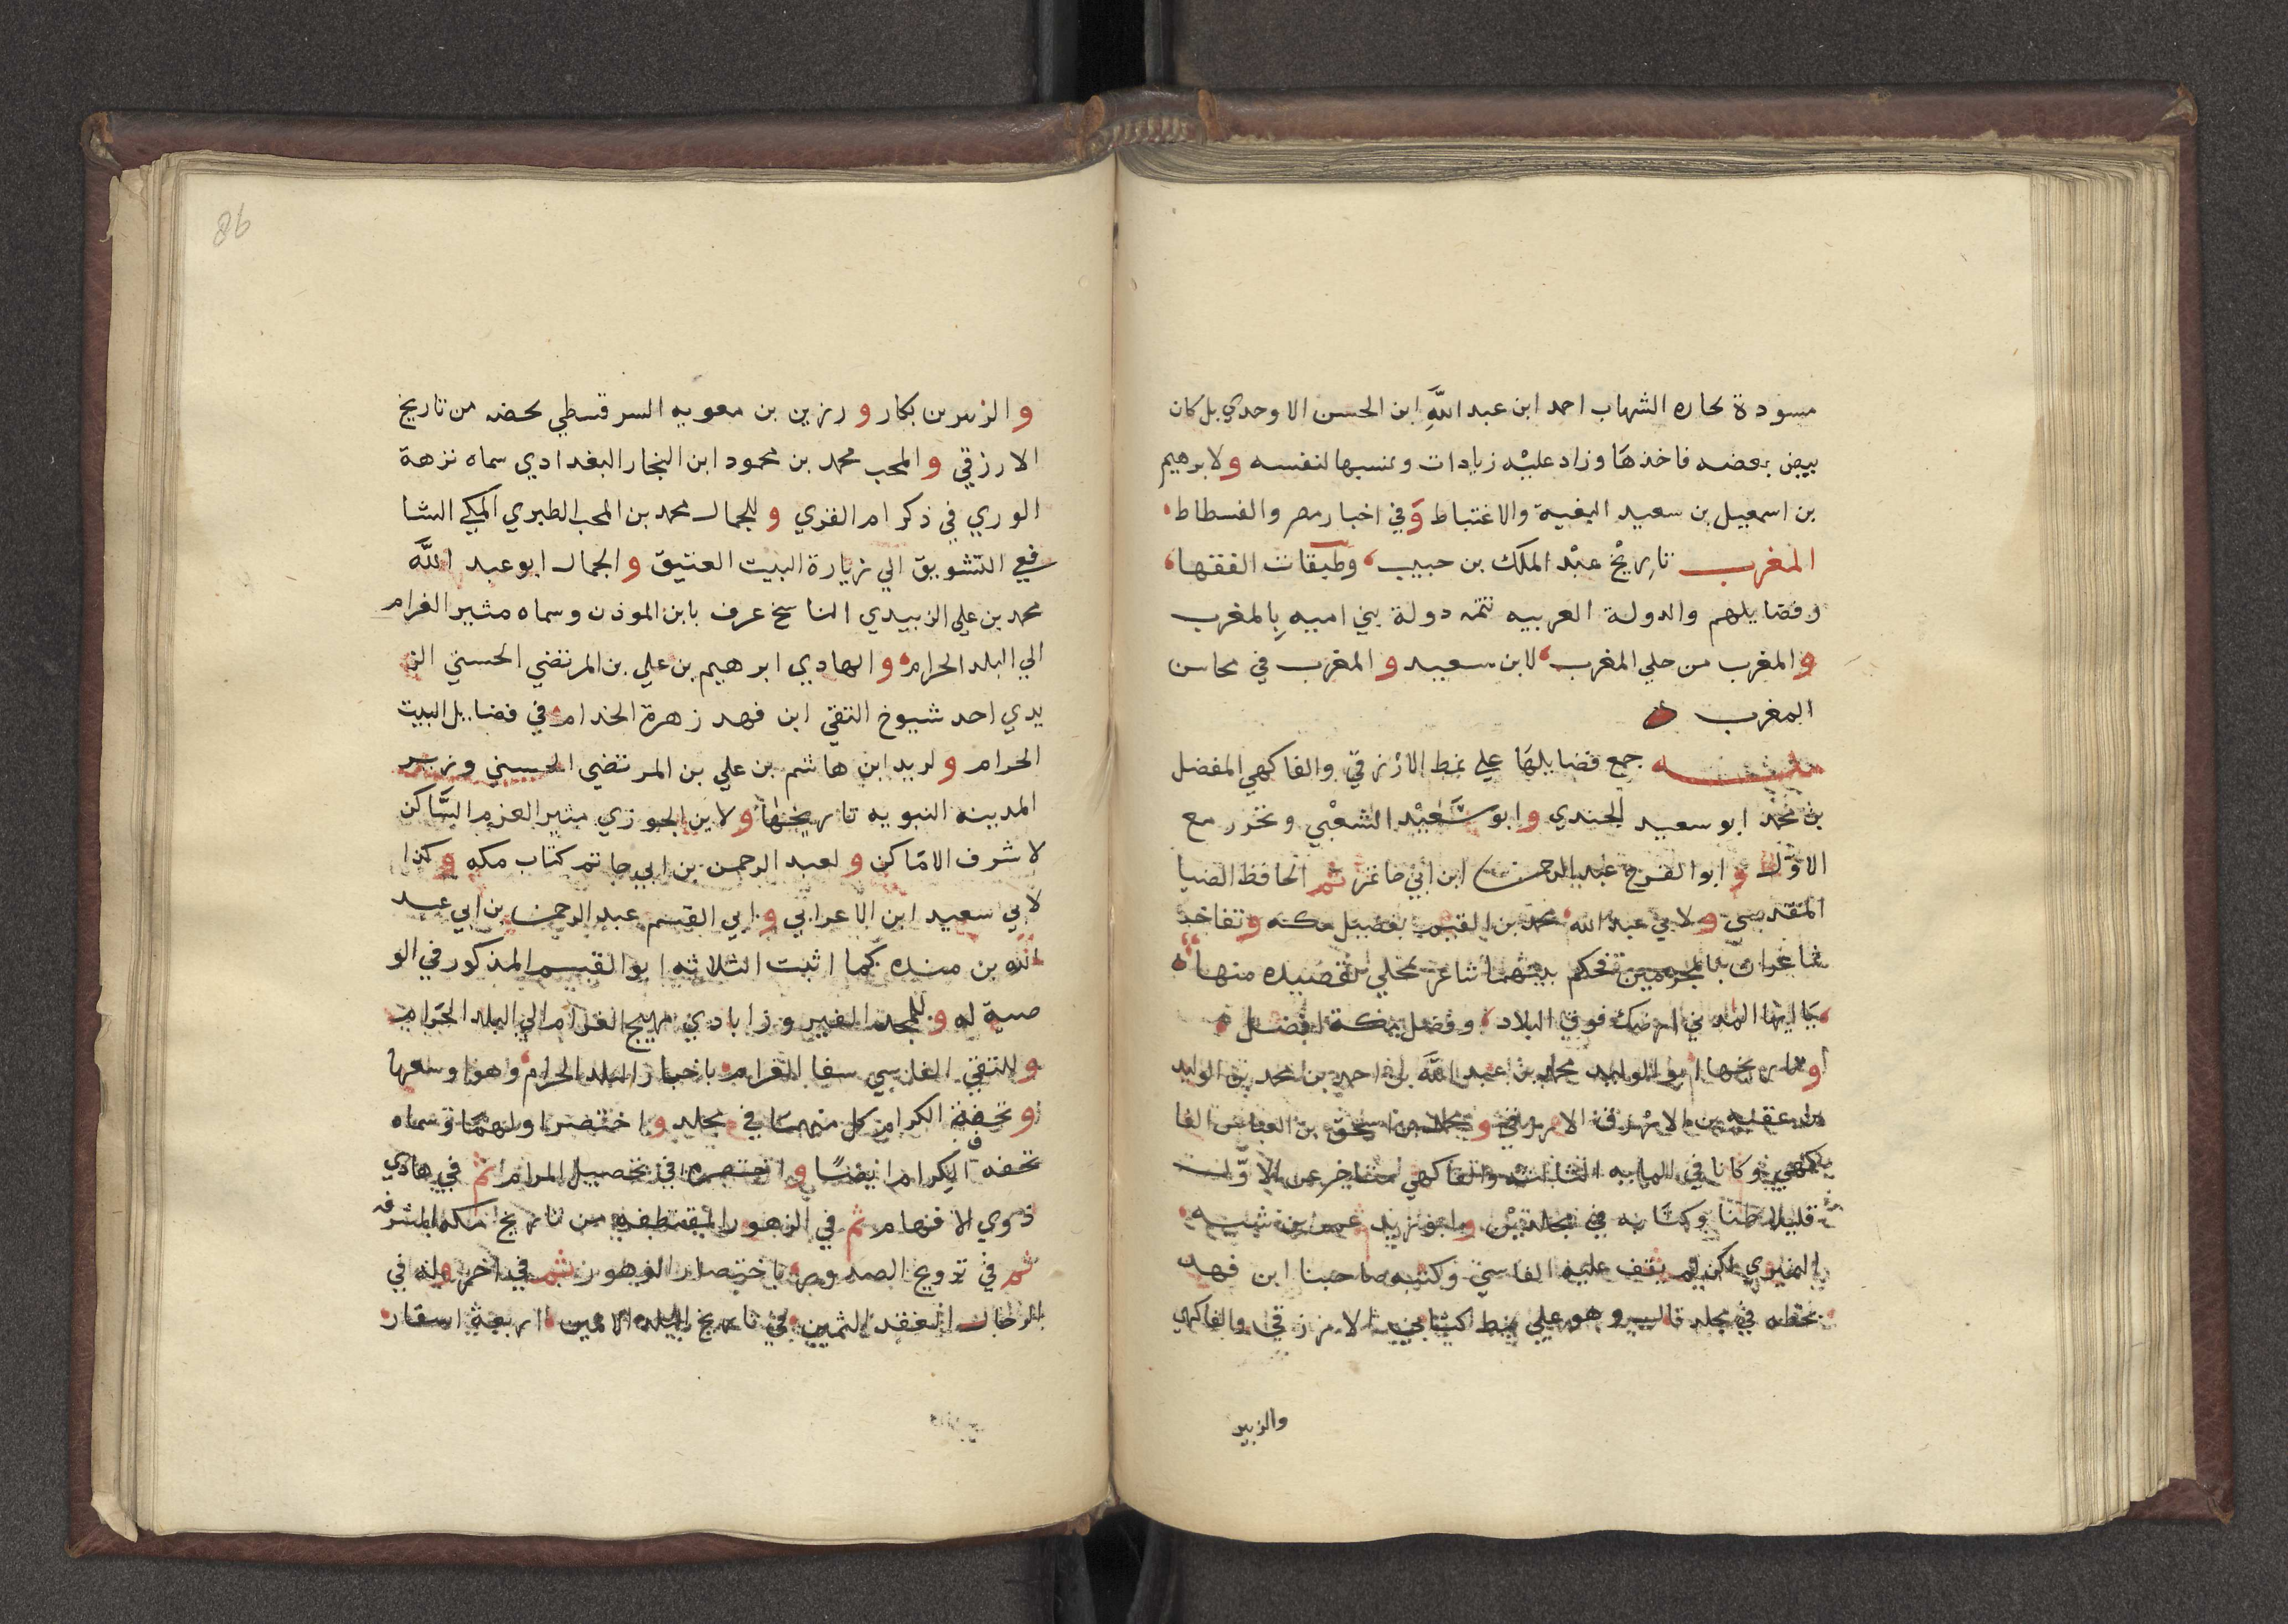 مسودة لجاره الشهاب احمد ابن عبد اللَّهِ ابن الحسن الاوحدي بل كان
بيض بعضه فاخذها وزاد عليه زيادات ونسبها لنفسه ولابرهيم
بن اسمعيل بن سعيد البغية والاغتباط وَفي اخبار مصر والفسطاط
المغرب تاريخ عبْد الملك بن حبيب، وطبقات الفقها،
وفضايلهم والدولة العربيه تتمه دولة بني اميه بالمغرب
والمغرب من حلي المغرب، لابن سعيد و المغرب في محاسن
المغرب
جمع فضايلهَا علي نمط الازرقي والفاكهي المفضل
بن محمد ابو سعيد الجندي وابو سَعيْد الشعْبي وتحرر مع
الاوّل و ابو الفرج عبد الرحمن ابن ابي حاتم ثم الحافظ الضيا
المقدسي ولابي عبد الله محمد بن القيم بفضيل مكه وتفاخر
شاعران بالحرمين فحكم بينهما شاعر بقصيده منها
يَا ايها المدني ارضك فوق البلاد، وفضل مكة افضل
وتاريخها ابو الوليد محمد بن عبد اللَّه بن احمد بن محمد بن الوليد
بن عقبه بن الازرق الازرقي ومحمد بن اسحق بن العباس الفا
كهي وكانا في المايه الثالثه والفاكهي متاخر عن الاوّل
قليلا ظنا وكتابه في مجلدين وابو زيد عمر بن شبه
النميري لكن لم يقف عليه الفاسي وكتبه صاحبنا ابن فهد
بخطه في مجلد وهو علي نمط كتابي الازرقي والفاكهي
والزبير
86
والزبير بن بكار و رزين بن معويه السرقسطي لخصه من تاريخ
الارزقي والمحب محمد بن محمود ابن النجار البغدادي سماه نزهة
الوري في ذكر ام القري وللجمال محمد بن المحب الطبري المكي الشا
فعي التشويق الي زيارة البيت العتيق والجمال ابو عبد اللَّه
محمد بن علي الزبيدي الناسخ عرف بابن الموذن وسماه مثير الغرام
الي البلد الحرام والهادي ابرهيم بن علي بن المرتضي الحسني الز
يدي احد شيوخ التقي ابن فهد زهرة الخدام في فضايل البيت
الحرام ولزيد ابن هاشم بن علي بن المرتضي الحسيني وزير
المدينه النبويه تاريخها ولابن الجوزي مثير العزم السَّاكن
لاشرف الامَاكن و لعبد الرحمن بن ابي حاتم كتاب مكه وكذا
لابي سعيد ابن الاعرابي وابي القسم عبد الرحمن بن ابي عبد
اللّه بن منده كما اثبت الثلاثه ابو القسم المذكور في الو
صية له وللمجد الفيروزابادي مهيج الغرام الي البلد الحَرام
وللتقي الفاسي شفا الغرام باخبار البلد الحرام وهو اوسعها
وتحفة الكرام كل منهما في مجلد واختصر اولهمَا وسماه
تحفه الكرام ايضًا واختصره في تحصيل المرام ثم في هادي
ذوي الافهام ثم في الزهور المقتطفه من تاريخ مكه المشرفه
ثم في ترويح الصدور باختصار الزهور ثم في اخر وله في
الرجال العقد الثمين في تاريخ البلد الامين اربعة اسفار